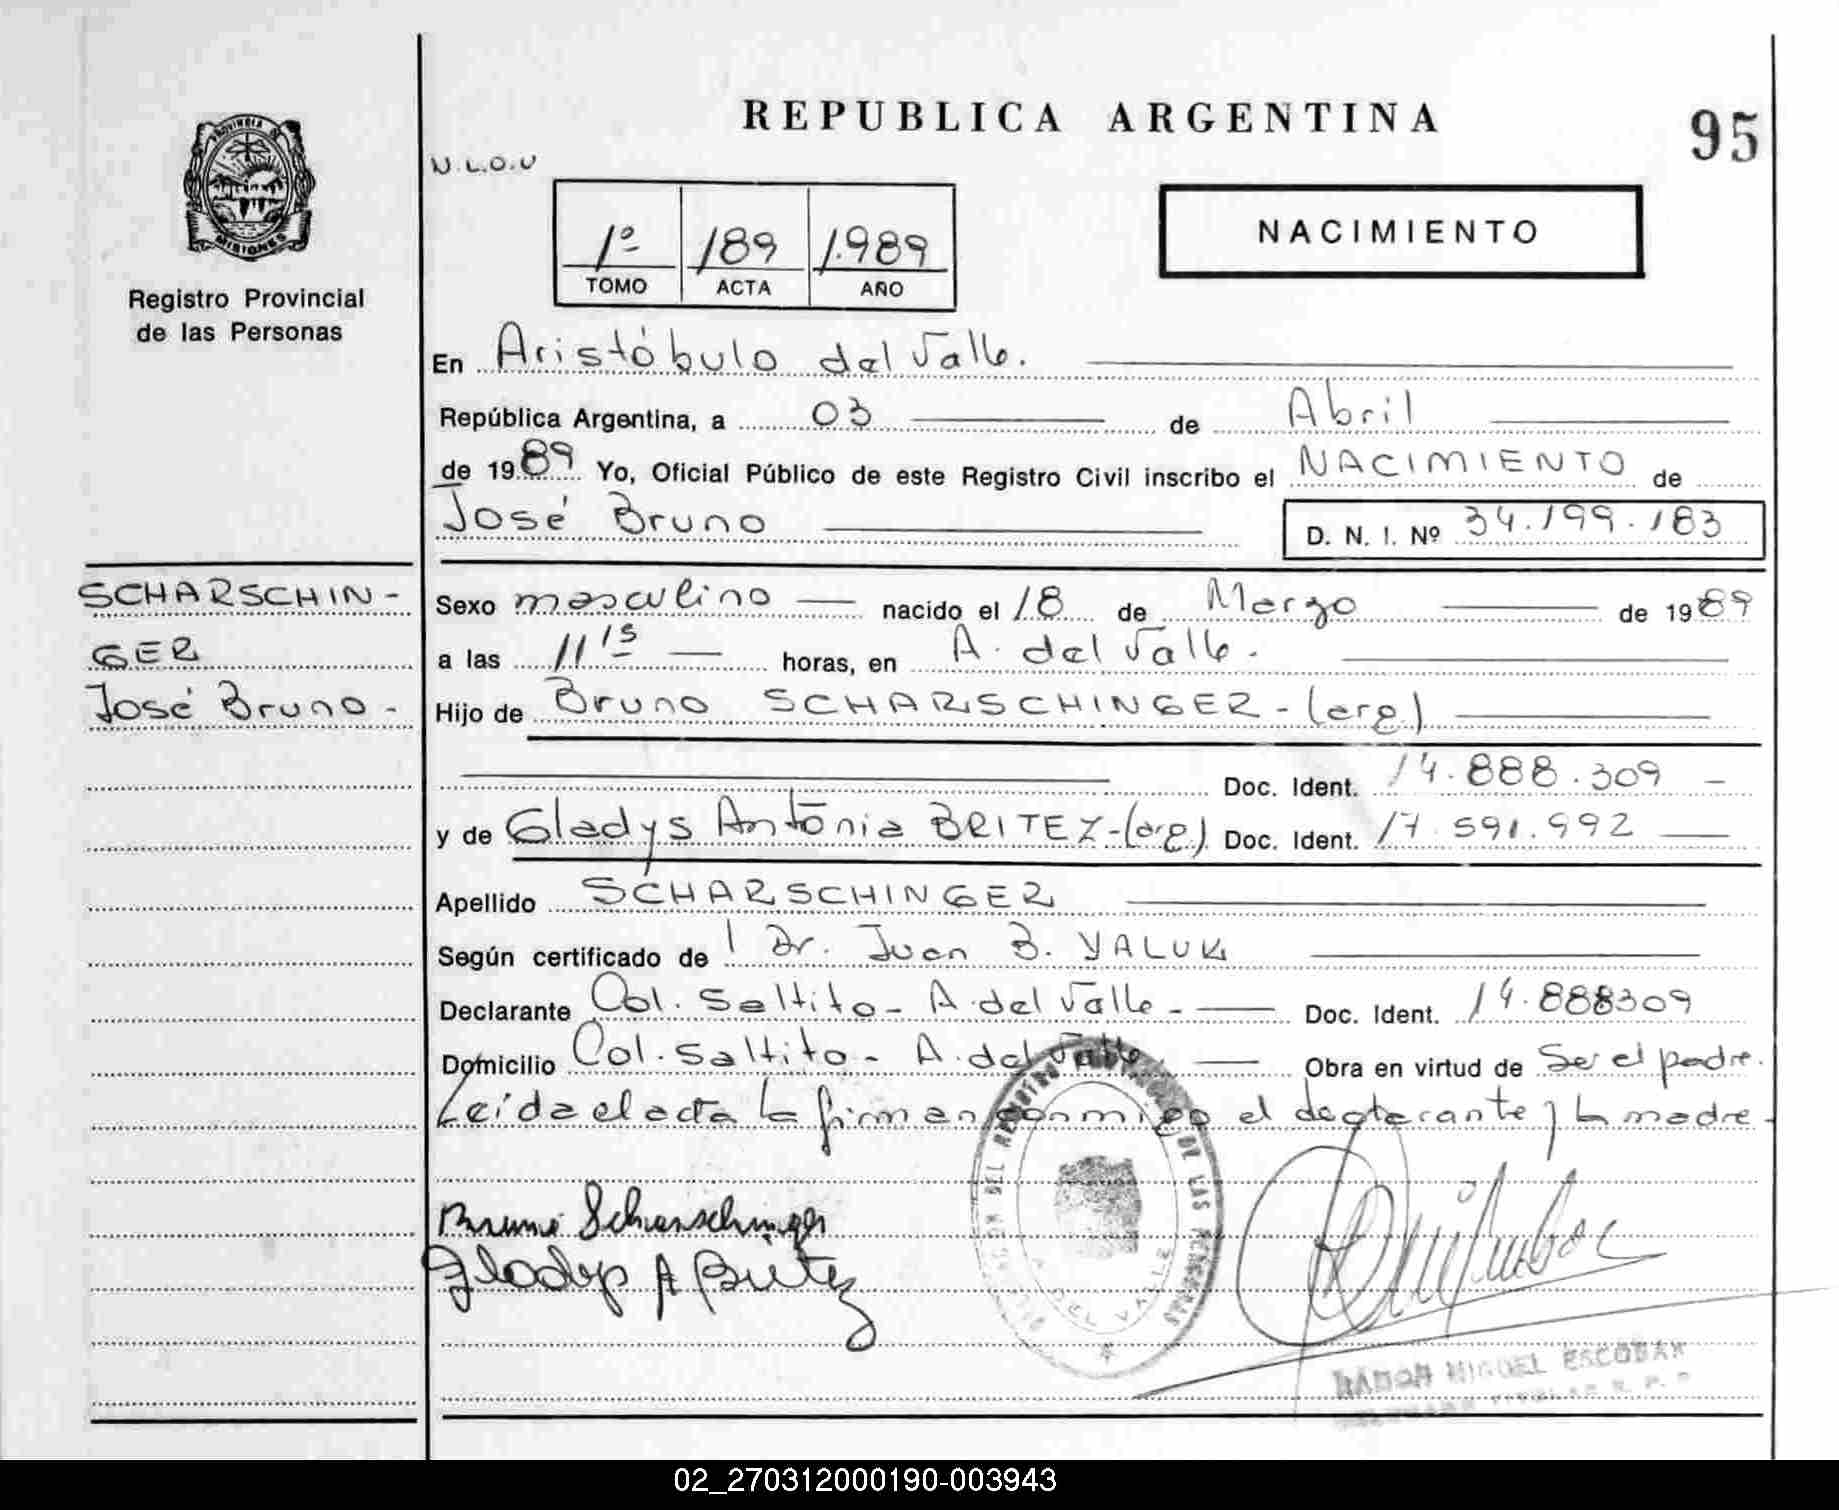 REPUBLICA ARGENTINA
95
PROVINCIA DE
MISIONES
Registro Provincial
de las Personas
N.L.O.U
1º 189 1.989
TOMO ACTA AÑO
NACIMIENTO
En Aristóbulo del Valle.
República Argentina, a 03 de Abril
de 1989 Yo, Oficial Público de este Registro Civil inscribo el NACIMIENTO de
José Bruno D. N. I. Nº 34.199.183
SCHARSCHIN-
GER
José Bruno-
Sexo masculino nacido el 18 de Marzo de 1989
a las 11 15 horas, en A. del Valle.
Hijo de Bruno SCHARSCHINGER-(arg.)
Doc. Ident. 14.888.309 -
y de Gladys Antonia BRITEZ-(arg.) Doc. Ident. 17.591.992
Apellido SCHARSCHINGER
Según certificado de Dr. Juan B. YALUK
Declarante Col. Saltito- A. del Valle- Doc. Ident. 14.888309
Domicilio Col. Saltito- A. del Valle. Obra en virtud de Ser el padre.
Leída el acta la firman conmigo el declarante y la madre-
Bruno Scharschinger
Gladys A Britez
DEL REGISTRO PROVINCIAL DE LAS PERSONAS
A. DEL VALLE
RAMON MIGUEL ESCOBAR
02_270312000190-003943